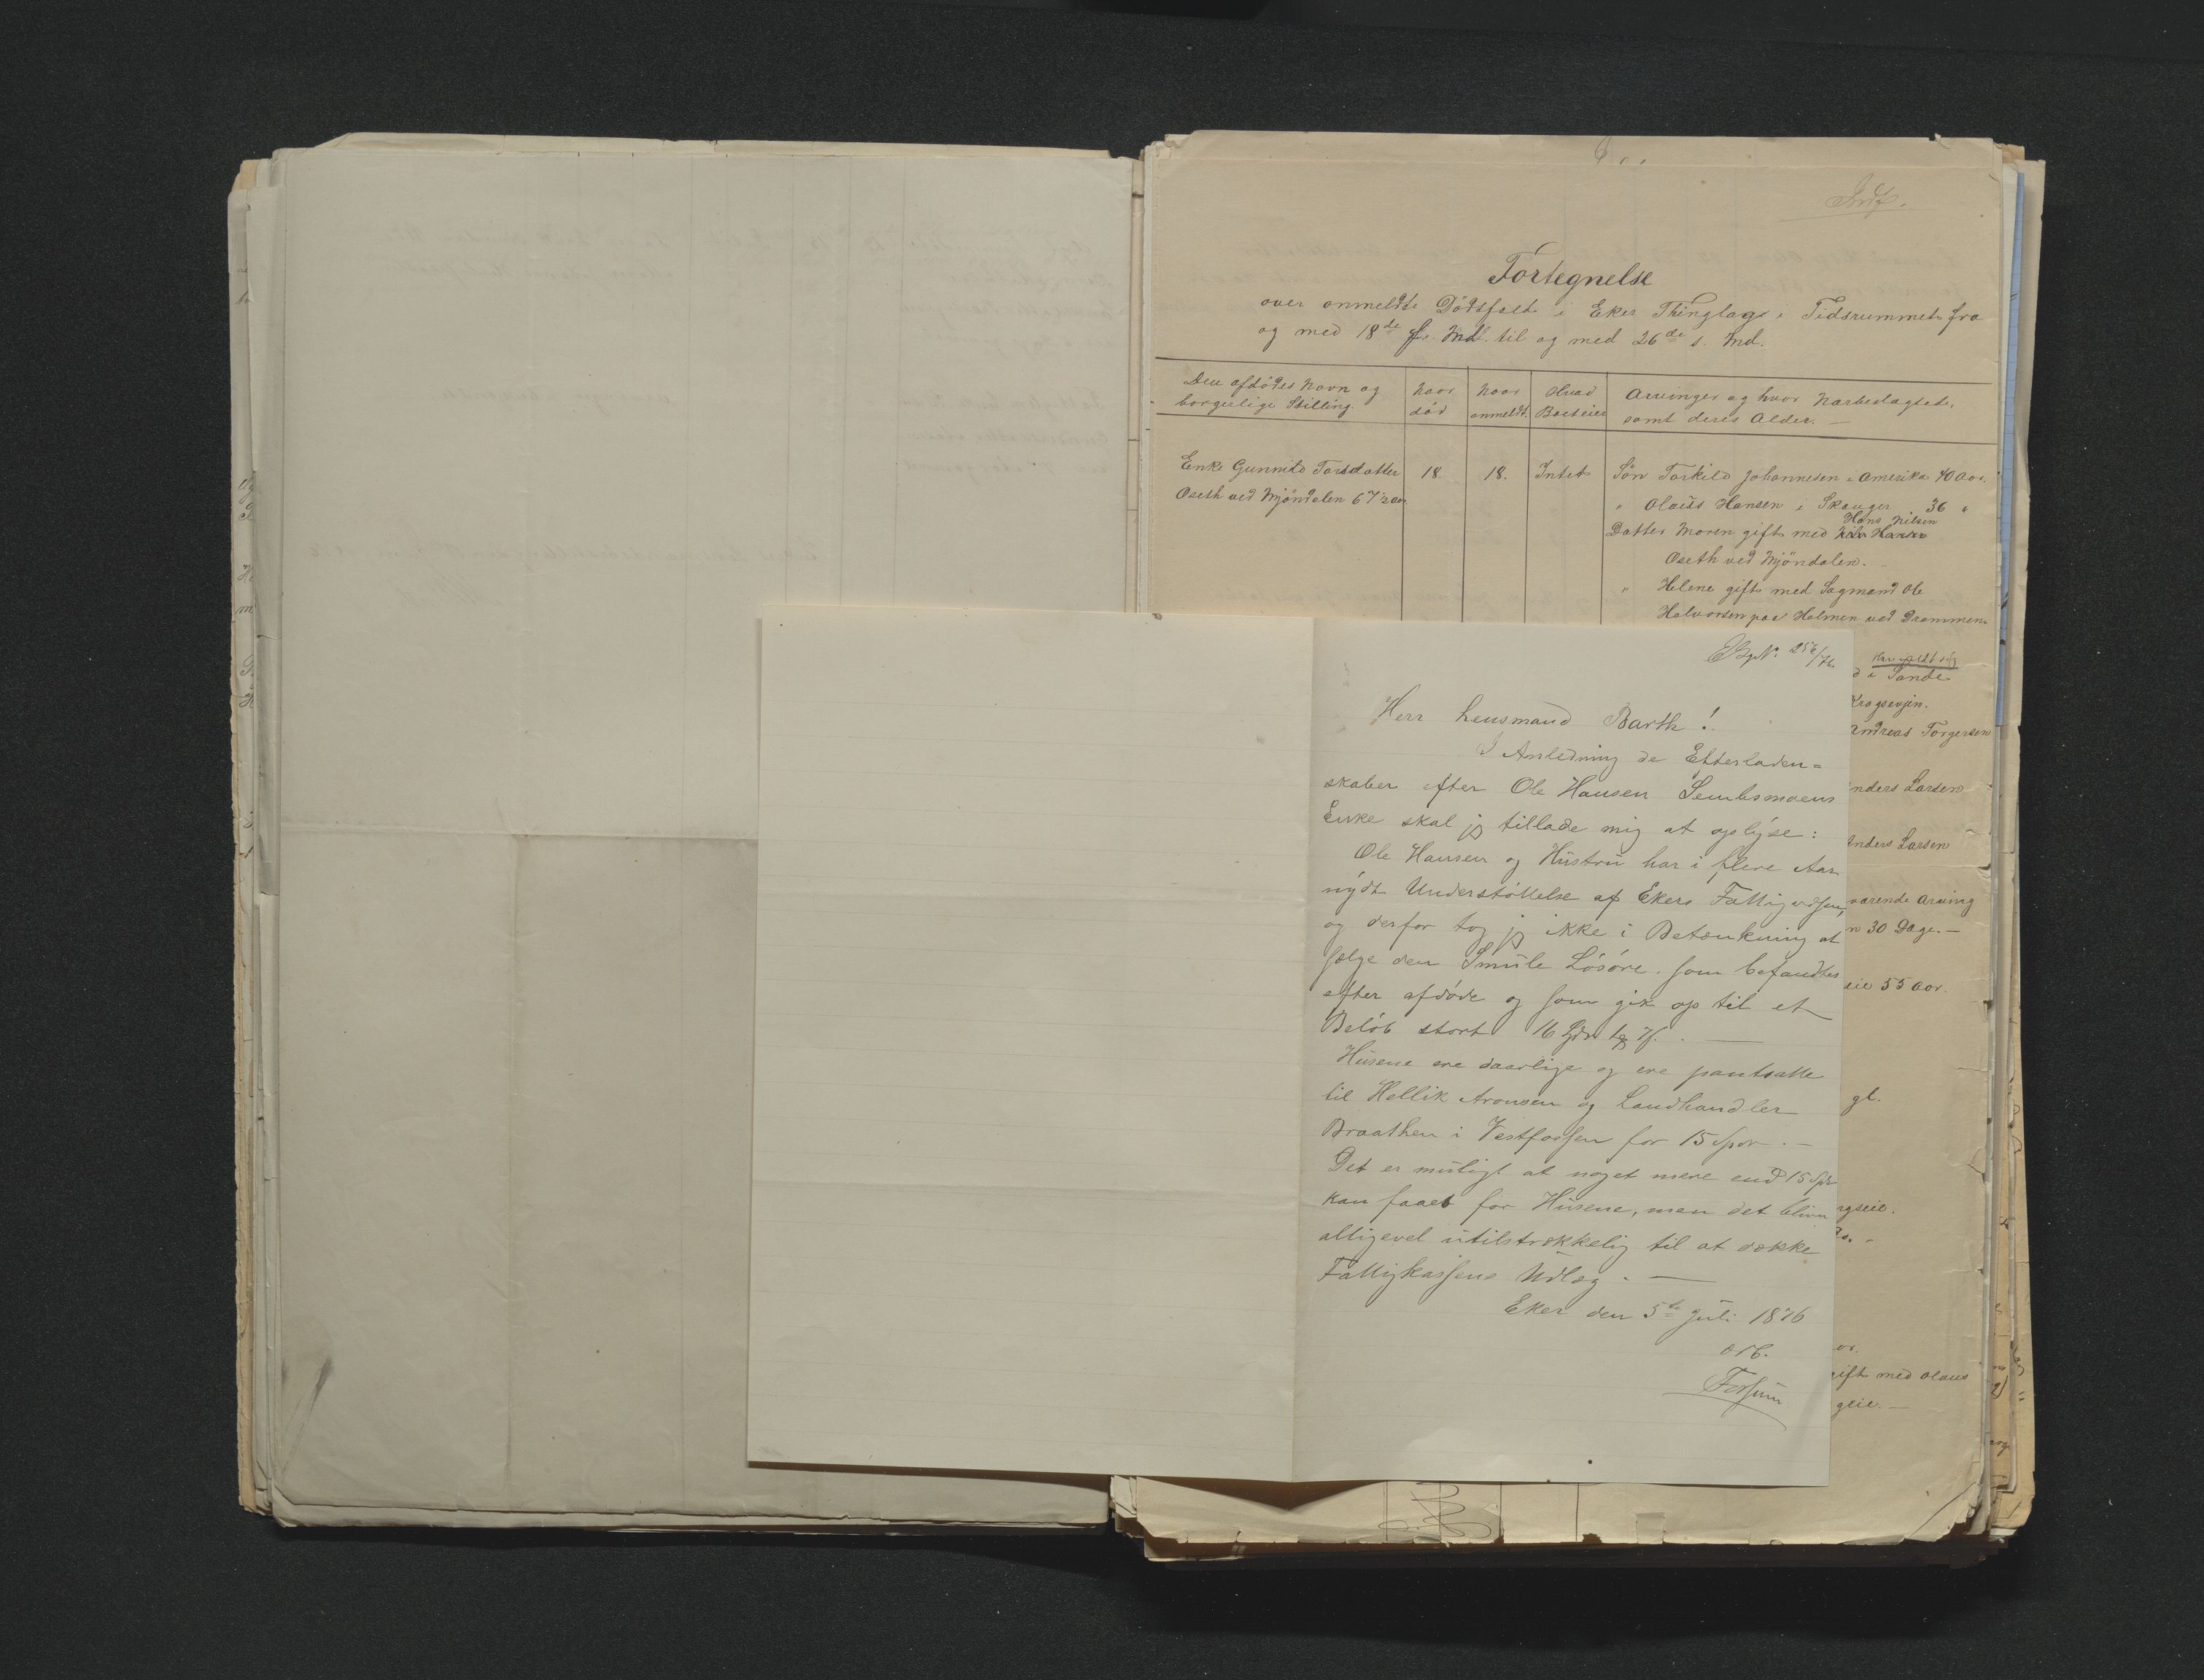 Fortegnelse
over anmeldte Dødsfald i Eker Thinglag i Tidsrummet fra
og med 18de f. Md. til og med 26de s. Md.
Den afdødes Navn og
borgerlige Stilling.
Naar
død
Naar
anmeldt.
Hvad
Boet eier
Arvinger og hvor Nærbeslagtede,
samt deres Alder. —
Enke Gunnild Torsdatter
Aaseth ved Mjøndalen 67½ aar
18
18.
Intet
Søn Torkild Johannesen i Amerika 40 Aar.
" Olaus Hansen i Skauger 36 "
Hans Nilsen
Datter Maren gift med
Oseth ved Mjøndalen.
" Helene gift med Sagmand Ole
Halvorsen paa Holmen ved Drammen
i Sande
Krogsevjen.
Andreas Torgersen
nders Larsen
Anders Larsen
værende Arving
n 30 Dage. —
eie 55 Aar.
gl.
rgseie.
gift med Olaus
geie. —
No. 256/76.
Herr Lensmand Barth!
I Anledning de Efterladen=
skaber efter Ole Hansen Sembsmoens
Enke skal jeg tillade mig at oplyse:
Ole Hansen og Hustru har i flere Aar
nydt Understøttelse af Ekers Fattigvæsen,
og derfor tog jeg ikke i Betænkning at
sælge den Smule Løsøre som befandtes
efter afdøde og som gik op til et
Beløb stort 16 Spd
Husene ere daarlige og ere pantsatte
til Hellik Aronsen og Landhandler
Braathen i Vestfossen for 15 Spd. —
Det er muligt at noget mere end 15 Spd
kan faaes for Husene, men det bliver
alligevel utilstrækkelig til at dække
Fattigkassens Udlæg. —
Eker den 5te Juli 1876
Fossum